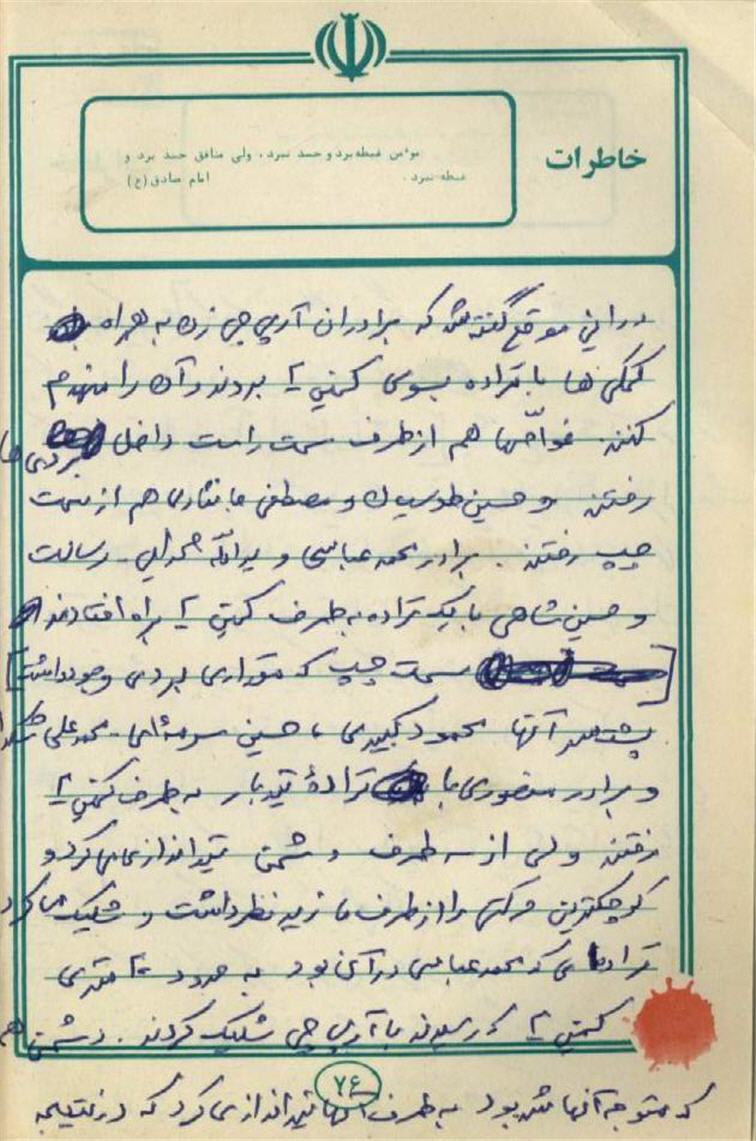 خاطرات
مؤمن غبطه برد و حسد نبرد، ولی منافق حسد برد و
غبطه نبرد. امام صادق (ع)
در این موقع گفته شد که برادران آرپی‌جی زن به همراه
کمکی ها با قراده بسوی کمین ۲ بروند و آن را منهدم
کنند. غواصها هم از طرف سمت راست داخل بردی ها
رفتند و حسین طوسیان و مصطفی جانثاری هم از سمت
چپ رفتند. برادر محمد عباسی و یداله رسالت
و حسین شاهی با یک قراده به طرف کمین ۲ براه افتادند
[سمت چپ که مقداری بردی وجود داشت]
پشت سر آنها محمود کبیری، حسین سرمه‌ای - محمد علی
و برادر منصوری با قرادهٔ تیربار به طرف کمین ۲
رفتند ولی از سه طرف دشمن تیراندازی می کرد و
کوچکترین حرکتها را از طرف ما زیر نظر داشت و شلیک می کرد
قراده‌ای که محمد عباسی در آن بود به حدود متری
کمین ۲ که رسیدند با آرپی جی شلیک کردند. دشمن هم
که متوجه آنها شده بود به طرف آنها تیراندازی کرد که در نتیجه
۷۶